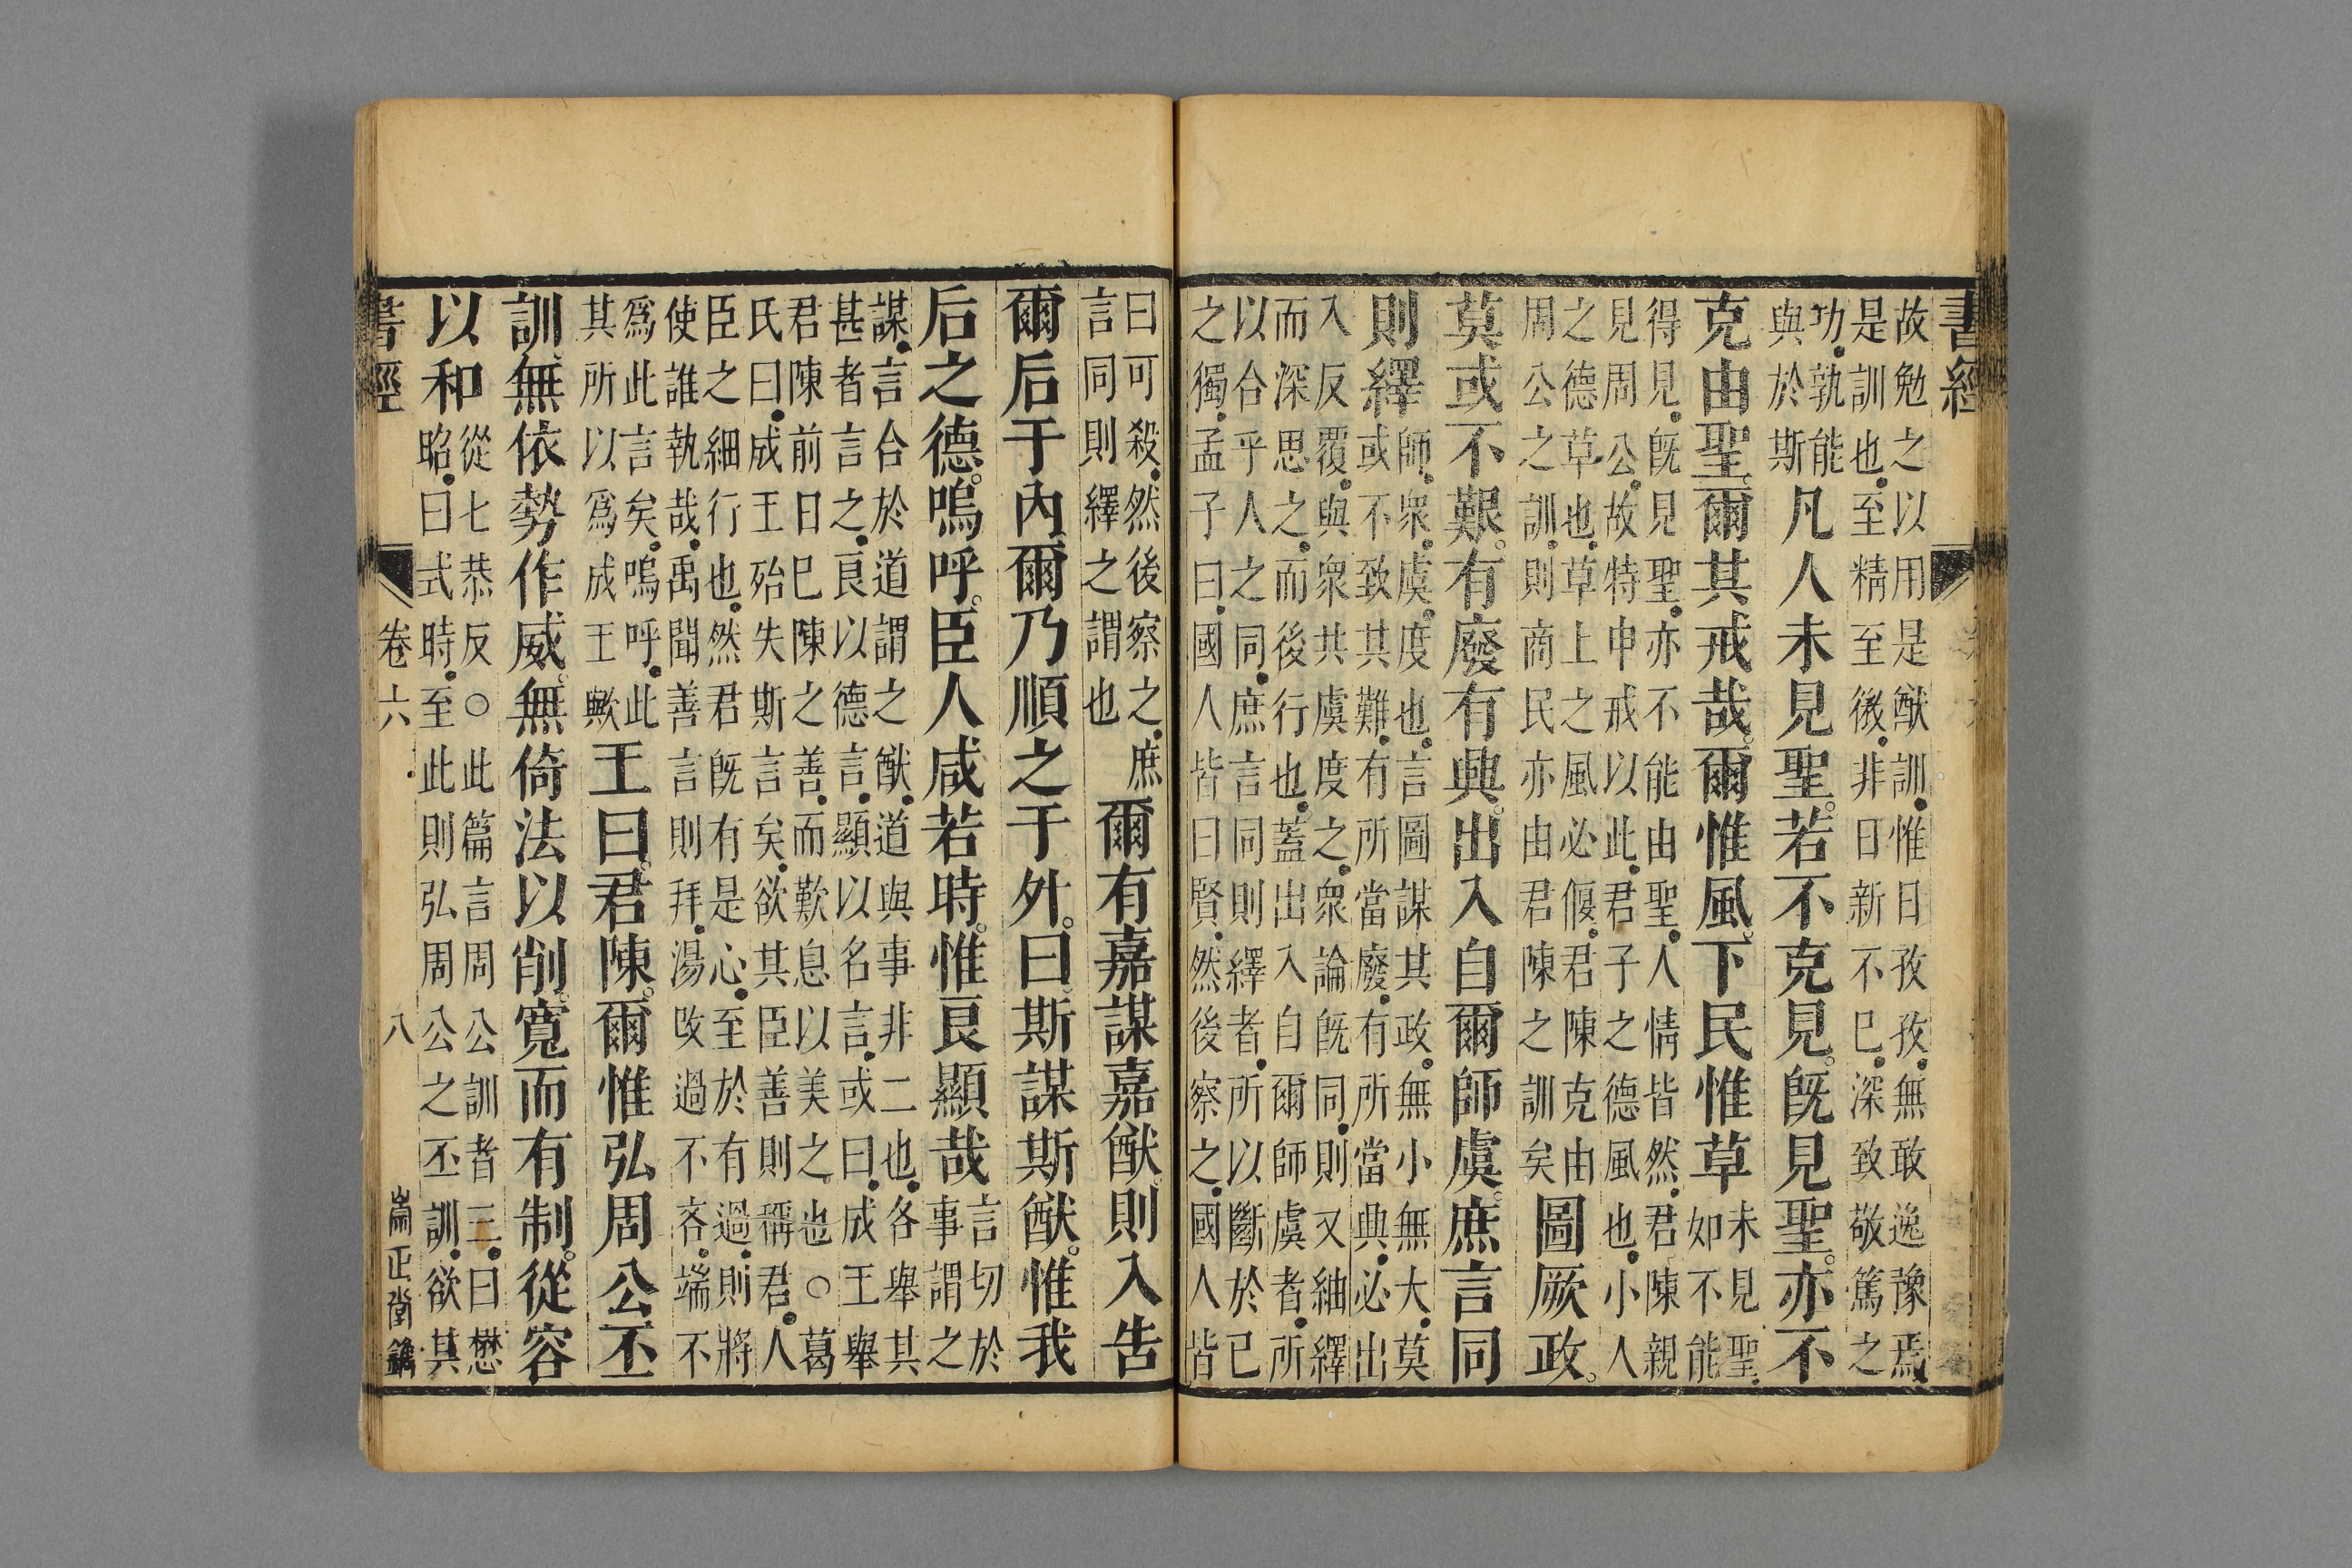 書經
故勉之以用是猷訓惟日孜孜無敢逸豫焉
是訓也至精至微非日新不已深致敬篤之
功孰能
與於斯
凡人未見聖若不克見既見聖亦不
克由聖爾其戒哉爾惟風下民惟草
未見聖
如不能
得見既見聖亦不能由聖人情皆然君陳親
見周公故特申戒以此君子之德風也小人
之德草也草上之風必偃君陳克由
周公之訓則商民亦由君陳之訓矣
圖厥政
莫或不艱有廢有典出入自爾師虞庶言同
則繹
師衆虞度也言圖謀其政無小無大莫
或不致其難有所當廢有所當典必出
入反覆與衆共虞度之衆論既同則又紬繹
而深思之而後行也蓋出入自爾師虞者所
以合乎人之同庶言同則繹者所以斷於己
之獨孟子曰國人皆曰賢然後察之國人皆
曰可殺然後察之庶
言同則繹之謂也
爾有嘉謀嘉猷則入告
爾后于內爾乃順之于外曰斯謀斯猷惟我
后之德嗚呼臣人咸若時惟良顯哉
言切於
事謂之
謀言合於道謂之猷道與事非二也各舉其
甚者言之良以德言顯以名言或曰成王舉
君陳前日巳陳之善而歎息以美之也○葛
氏曰成王殆失斯言矣欲其臣善則稱君人
臣之細行也然君既有是心至於有過則將
使誰執哉禹聞善言則拜湯改過不吝端不
爲此言矣嗚呼此
其所以爲成王歟
王曰君陳爾惟弘周公丕
訓無依勢作威無倚法以削寬而有制從容
以和
從七恭反○此篇言周公訓者三曰懋
昭曰式時至此則弘周公之丕訓欲其
書經 卷六 八 崇正堂鐫